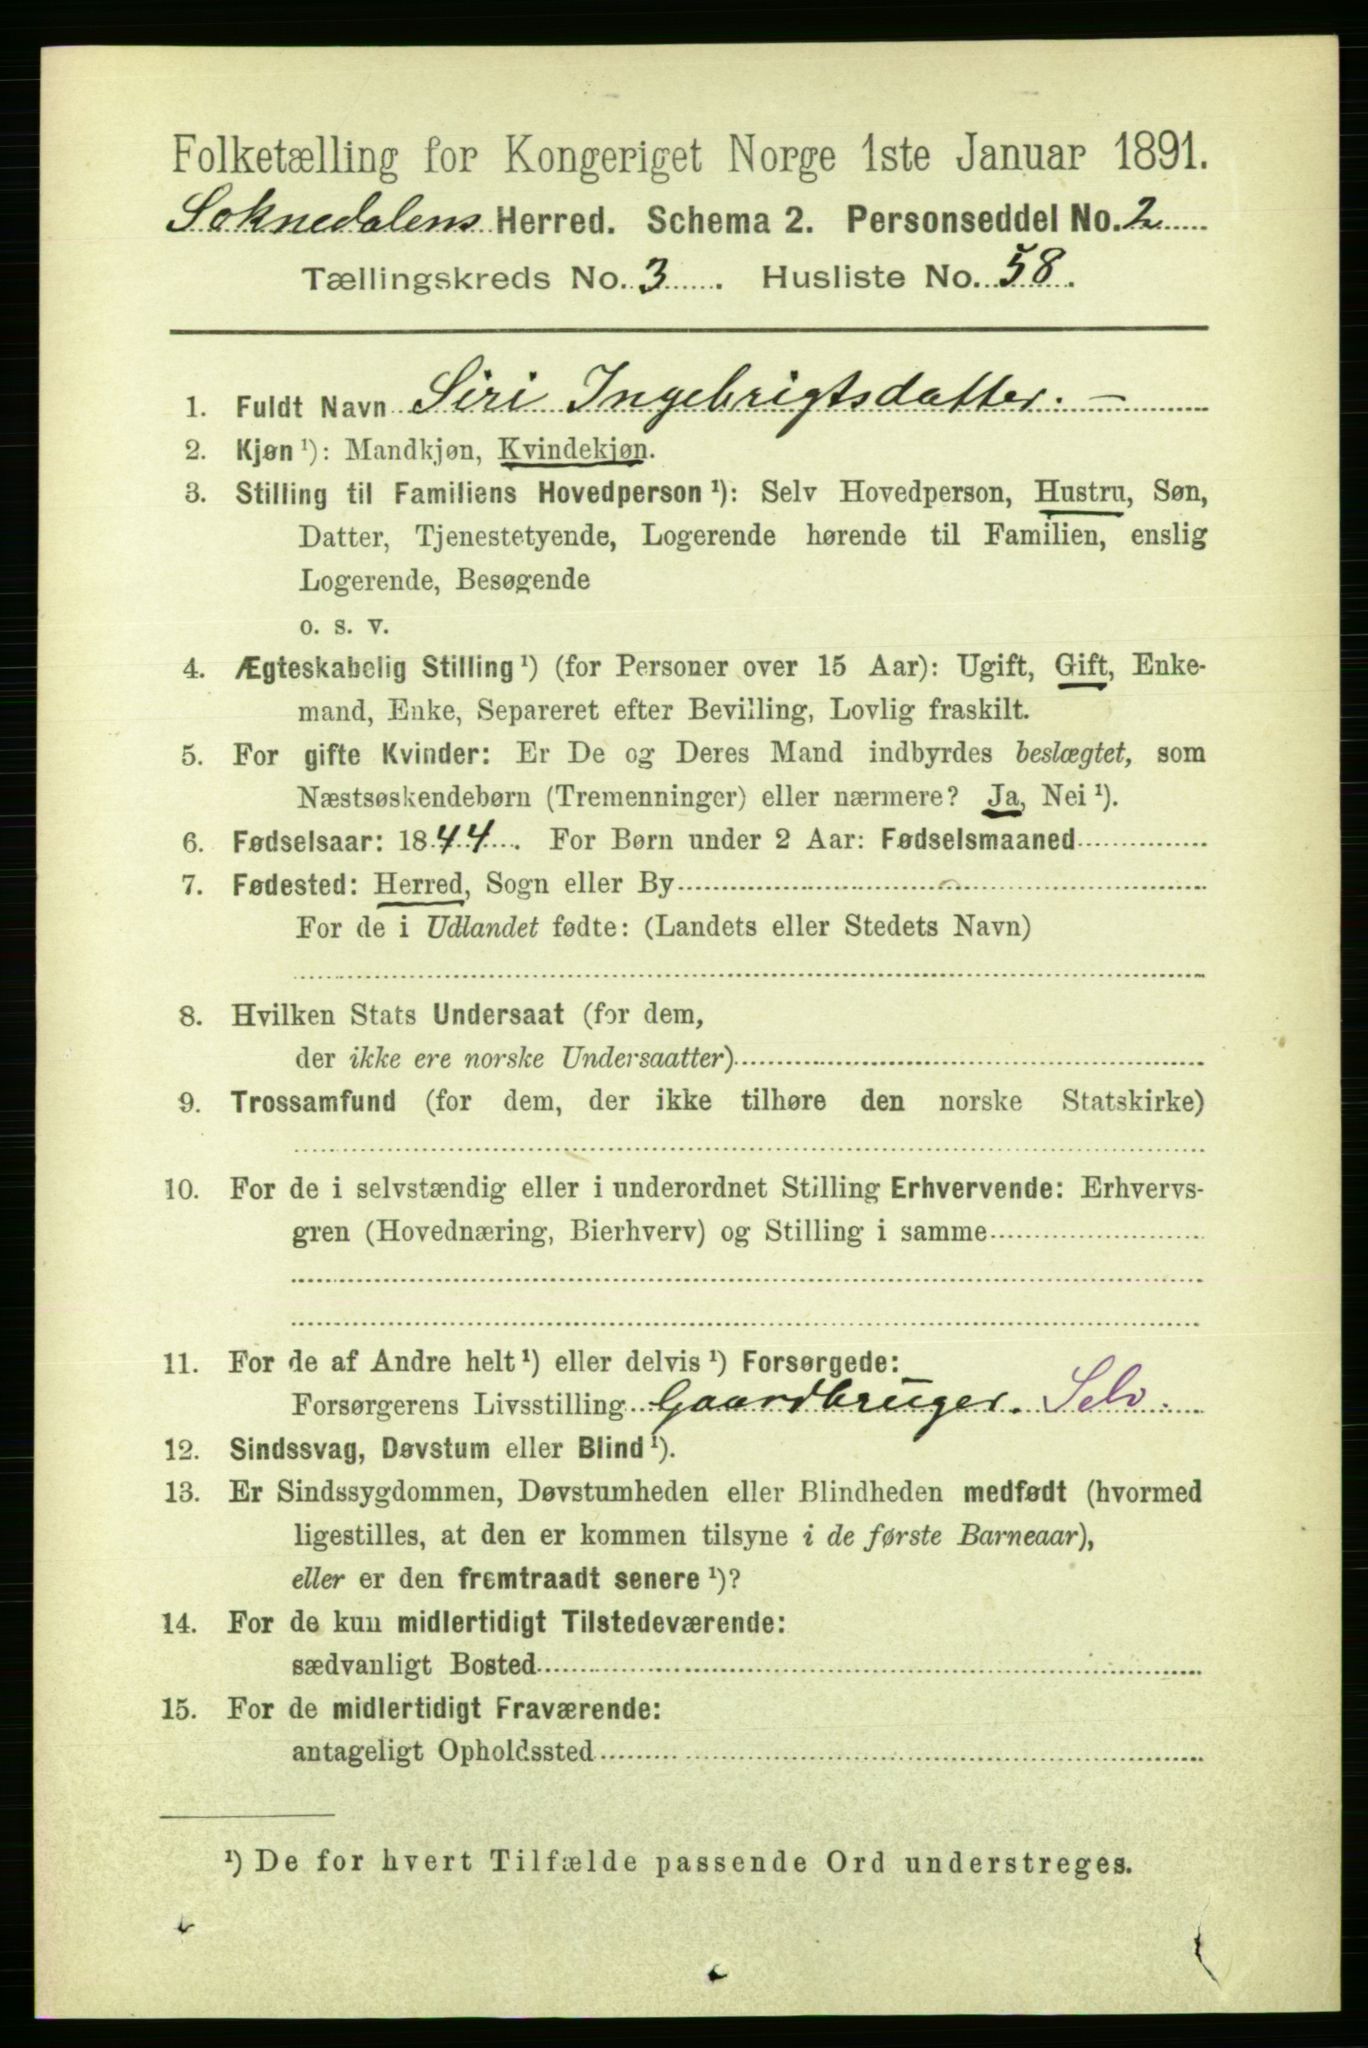 Folketælling for Kongeriget Norge 1ste Januar 1891.
Soknedalens Herred. Schema 2. Personseddel No. 2
Tællingskreds No. 3. Husliste No. 58.
1. Fuldt Navn Siri Ingebrigtsdatter. —
2. Kjøn ¹): Mandkjøn, Kvindekjøn.
3. Stilling til Familiens Hovedperson ¹): Selv Hovedperson, Hustru, Søn,
Datter, Tjenestetyende, Logerende hørende til Familien, enslig
Logerende, Besøgende
o. s. v.
4. Ægteskabelig Stilling ¹) (for Personer over 15 Aar): Ugift, Gift, Enke-
mand, Enke, Separeret efter Bevilling, Lovlig fraskilt.
5. For gifte Kvinder: Er De og Deres Mand indbyrdes beslægtet, som
Næstsøskendebørn (Tremenninger) eller nærmere? Ja, Nei ¹).
6. Fødselsaar: 1844. For Børn under 2 Aar: Fødselsmaaned
7. Fødested: Herred, Sogn eller By
For de i Udlandet fødte: (Landets eller Stedets Navn)
8. Hvilken Stats Undersaat (for dem,
der ikke ere norske Undersaatter)
9. Trossamfund (for dem, der ikke tilhøre den norske Statskirke)
10. For de i selvstændig eller i underordnet Stilling Erhvervende: Erhvervs-
gren (Hovednæring, Bierhverv) og Stilling i samme
11. For de af Andre helt ¹) eller delvis ¹) Forsørgede:
Forsørgerens Livsstilling Gaardbruger. Selv.
12. Sindssvag, Døvstum eller Blind ¹).
13. Er Sindssygdommen, Døvstumheden eller Blindheden medfødt (hvormed
ligestilles, at den er kommen tilsyne i de første Barneaar),
eller er den fremtraadt senere ¹)?
14. For de kun midlertidigt Tilstedeværende:
sædvanligt Bosted
15. For de midlertidigt Fraværende:
antageligt Opholdssted
¹) De for hvert Tilfælde passende Ord understreges.